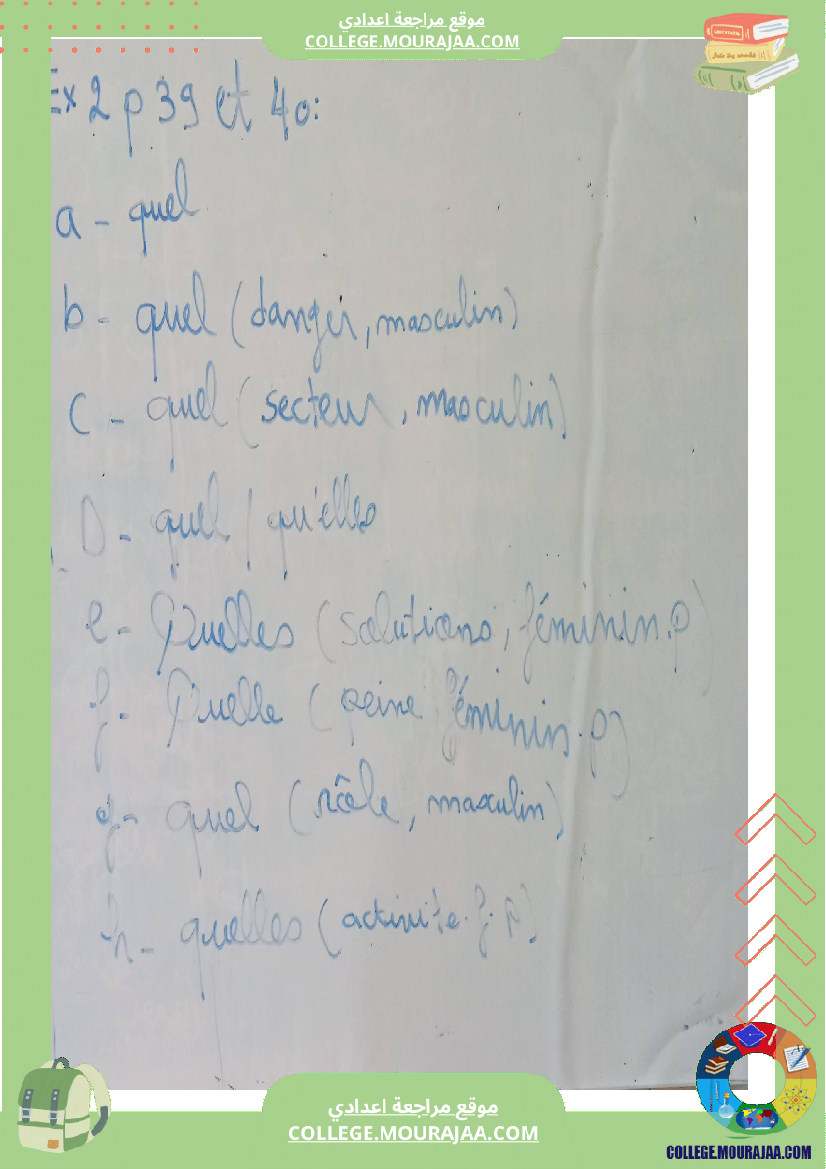 موقع مراجعة اعدادي
COLLEGE.MOURAJAA.COM
Ex 2 p 39 et 40:
a - quel
b - quel (danger, masculin)
c - quel (secteur, masculin)
D - quel / qu'elles
e - Quelles (solutions, féminin.p)
f - Quelle (peine féminin.p)
g - quel (rôle, masculin)
h - quelles (activite.f.p)
موقع مراجعة اعدادي
COLLEGE.MOURAJAA.COM
COLLEGE.MOURAJAA.COM